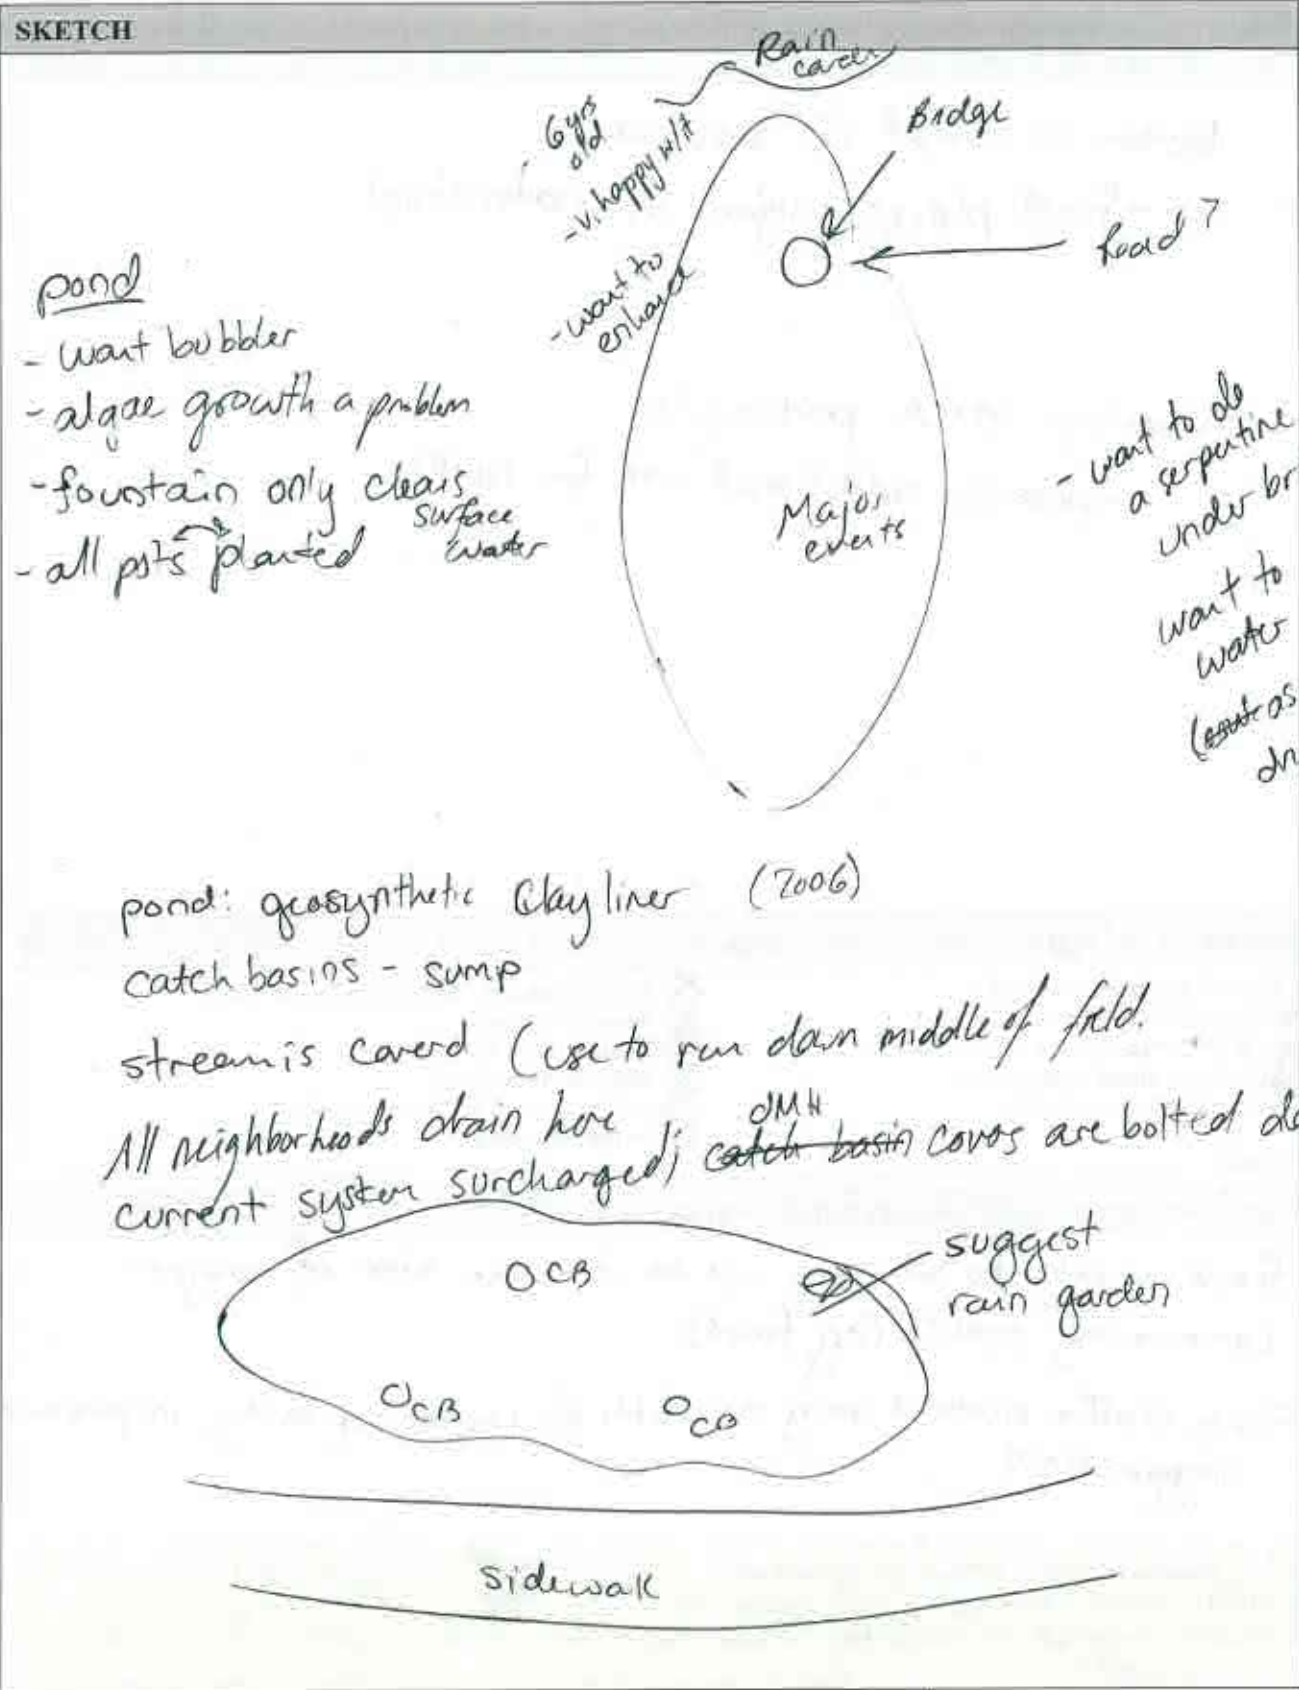 SKETCH
Rain
- 6 yrs
old
- v. happy w/it
- want to
enhance
Bridge
Road?
pond
- want bubbler
- algae growth a problem
- fountain only clears
surface
water
- all planted
Major
events
- want to do
a serpentine
under br
want to
water
pond: geosynthetic Clay liner (2006)
catch basins - sump
stream is coverd (use to run down middle of field.
All neighborhoods drain here
current system surcharged; DMH catch basin covers are bolted do
CB
suggest
rain garden
CB
CB
sidewalk